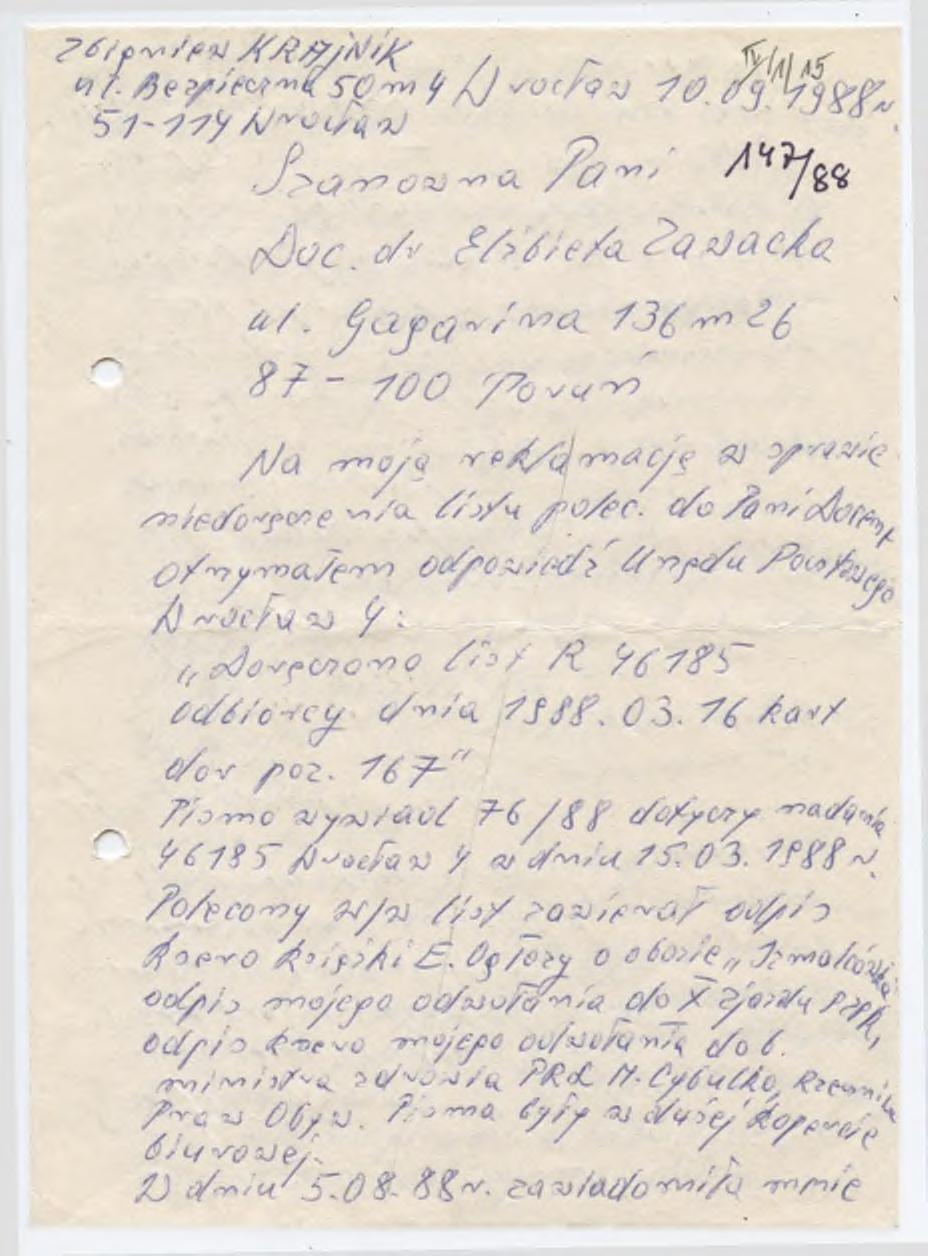 Zbigniew KRAJNIK
ul. Bezpieczna 50 m 4 Wrocław 10.09.1988r.
IV/1/15
51-114 Wrocław
147/88
Szanowna Pani
Doc. dr Elżbieta Zawacka
ul. Gagarina 136 m 26
87-100 Toruń
Na moją reklamację w sprawie
niedoręczenia listu polec. do Pani Docent
otrzymałem odpowiedź Urzędu Pocztowego
Wrocław 4:
„Doręczono list R 46185
odbiorcy dnia 1988.03.16 kart
dor poz. 167"
Pismo wywiad 76/88 dotyczy nadania
46185 Wrocław 4 w dniu 15.03.1988 r.
Polecony w/w list zawierał odpis
ksero książki E. Ogłozy o obozie „
odpis mojego odwołania do X Zjazdu
odpis ksero mojego odwołania do b.
ministra zdrowia PRL M. Cybulko, Rzecznika
Praw Obyw. Pisma były w dużej kopercie
biurowej.
W dniu 5.08.88r. zawiadomiła mnie